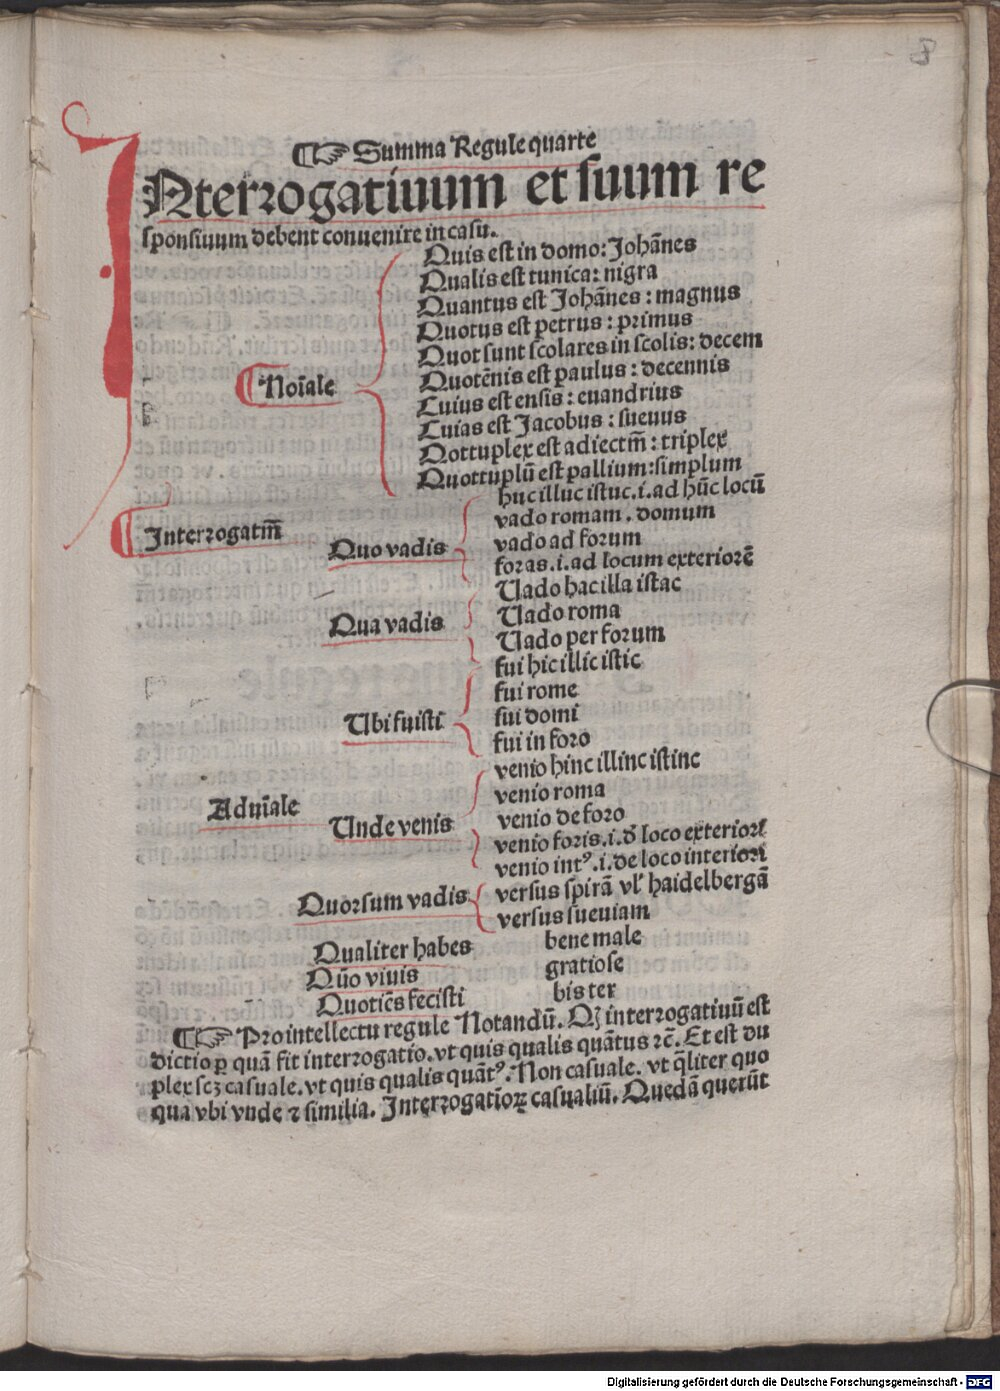 8
☞ Summa Regule quarte
INterrogatiuum et suum re
sponsiuum debent conuenire in casu.
Quis est in domo: Johãnes
Qualis est tunica: nigra
Quantus est Johãnes: magnus
Quotus est petrus: primus
Quot sunt scolares in scolis: decem
Quotẽnis est paulus: decennis
Noĩale
Cuius est ensis: euandrius
Cuias est Jacobus: sueuus
Qottuplex est adiectm̃: triplex
Quottuplũ est pallium: simplum
Interrogatm̃
Quo vadis
huc illuc istuc .i. ad hũc locũ
vado romam. domum
vado ad forum
foras .i. ad locum exteriorẽ
Qua vadis
Uado hac illa istac
Uado roma
Uado per forum
Ubi fuisti
fui hic illic istic
fui rome
fui domi
fui in foro
Aduĩale
Unde venis
venio hinc illinc istinc
venio roma
venio de foro
venio foris .i. d̃ loco exteriori
venio intꝰ .i. de loco interiori
Quorsum vadis
versus spirã vl' haidelbergã
versus sueuiam
Qualiter habes bene male
Qũo viuis gratiose
Quotiẽs fecisti bis ter
☞ Pro intellectu regule Notandũ. Qꝫ interrogatiuũ est
dictio ꝑ quã fit interrogatio. vt quis qualis quãtus ⁊c̃. Et est du
plex scꝫ casuale. vt quis qualis quãtꝰ. Non casuale. vt q̃liter quo
qua vbi vnde ⁊ similia. Interrogatioꝝ casualiũ. Quedã querũt
Digitalisierung gefördert durch die Deutsche Forschungsgemeinschaft - DFG